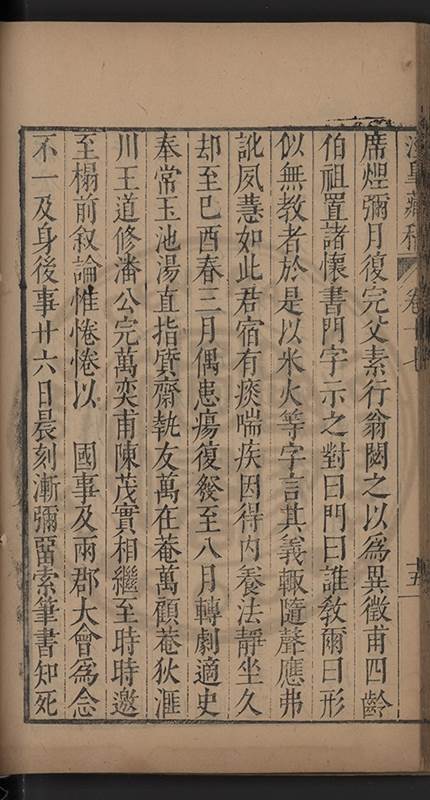 藏稿 卷十七 十五
席煙彌月復完父素行翁閟之以爲異徵甫四齡
伯祖置諸懷書門字示之對曰門曰誰敎爾曰形
似無教者於是以水火等字言其義輙隨聲應弗
訛夙慧如此君宿有痰喘疾因得內養法靜坐久
却至巳酉春三月偶患瘍復發至八月轉劇適史
奉常玉池湯直指質齋執友萬在菴萬顧菴狄滙
川王道修潘公完萬奕甫陳茂實相繼至時時邀
至榻前敘論惟惓惓以 國事及兩郡大會爲念
不一及身後事廿六日晨刻漸彌畱索筆書知死